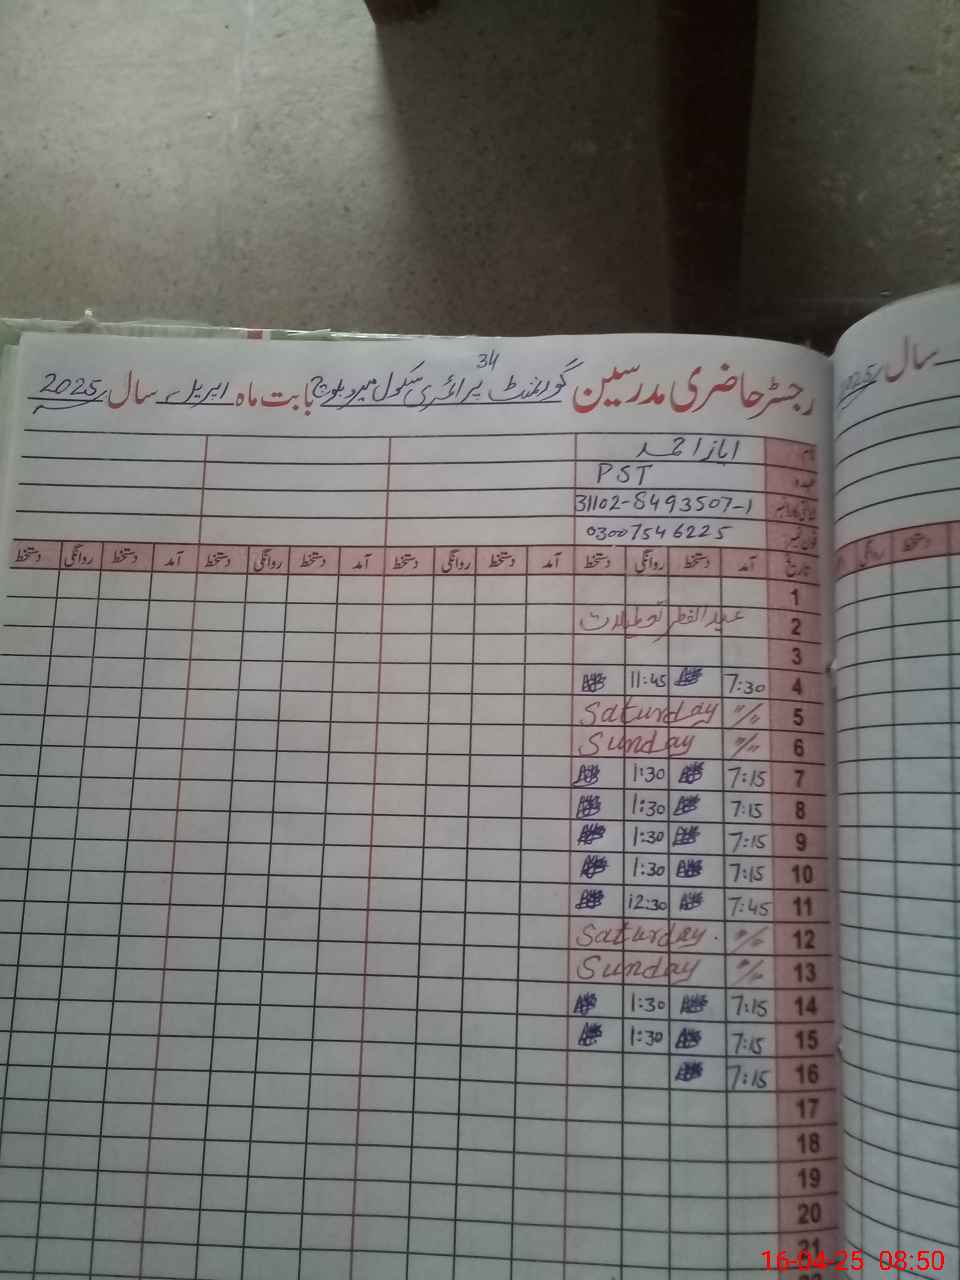 رجسٹر حاضری مدرسین گورنمنٹ پرائمری سکول میرو بلوچ بابت ماہ اپریل سال 2025ء
34
نام ایاز احمد
عہدہ PST
شناختی کارڈ نمبر 31102-8493507-1
فون نمبر 03007546225
تاریخ آمد دستخط روانگی دستخط آمد دستخط روانگی دستخط آمد دستخط روانگی دستخط آمد دستخط روانگی دستخط
1
2 عید الفطر تعطیلات
3
4 7:30 11:45
5 "/" Saturday
6 "/" Sunday
7 7:15 1:30
8 7:15 1:30
9 7:15 1:30
10 7:15 1:30
11 7:45 12:30
12 "/" Saturday.
13 "/" Sunday
14 7:15 1:30
15 7:15 1:30
16 7:15
17
18
19
20
21
سال 2025ء
دستخط روانگی
16-04-25 08:50